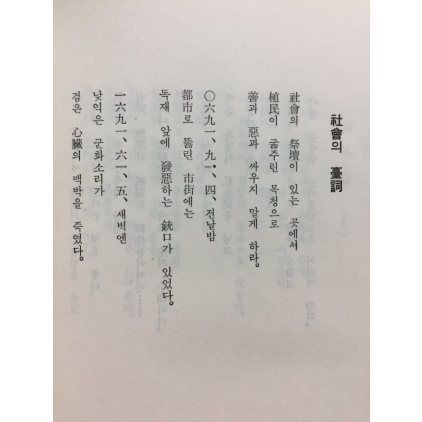 社會의 臺詞
社會의 祭壇이 있는 곳에서
植民이 굶주린 목청으로
善과 惡과 싸우지 말게 하라。
〇六九一、九一•、四、전날밤
都市로 뚫린 市街에는
독재 앞에 發惡하는 銃口가 있었다。
一六九一、六一、五、새벽엔
낯익은 군화소리가
검은 心臟의 맥박을 죽였다。